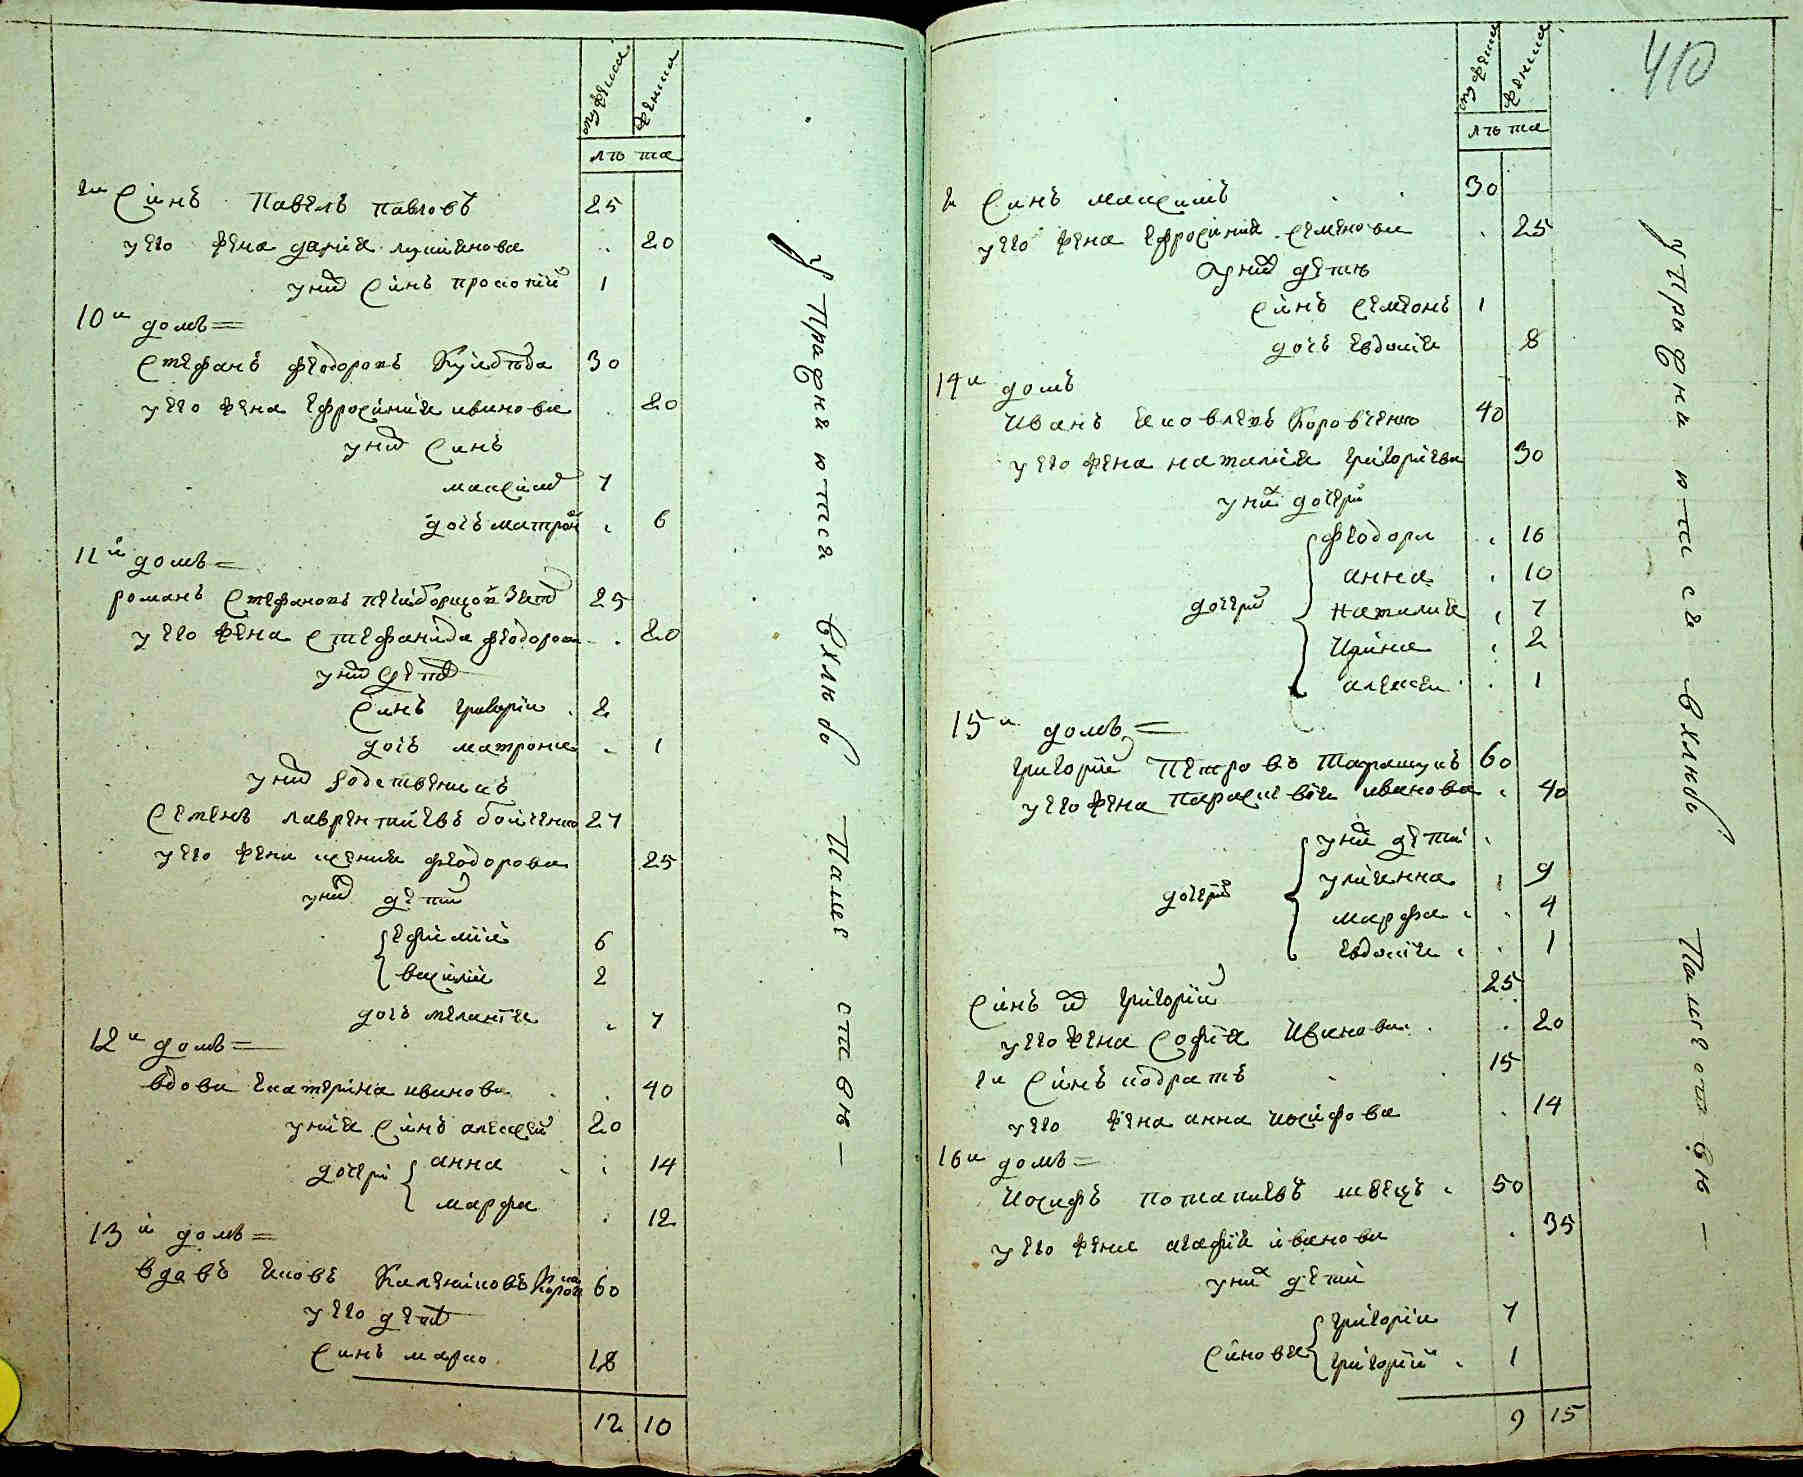 мужеска женска
лѣта
2й Синъ Павелъ павловъ 25
у его жена дария лукиянова 20
у них Синъ прокопий 1
10й домъ=
Стефанъ феодоровъ 30
у его жена ефросиния иванова 20
у них Синъ
максим 7
дочь матрона 6
11й домъ=
романъ Стефановъ 25
у его жена стефанида феодорова 20
у них дети
Синъ григорий 2
дочь матрона 1
у них родственикъ
Семенъ лаврентиевъ бойченко 27
у его жена ксения феодорова 25
у них дети
ефимий 6
василий 2
дочь мелания 7
12й домъ=
вдова екатерина иванова 40
у ния Синъ алексей 20
дочери анна 14
марфа 12
13й домъ=
вдавъ яковъ Калениковъ 60
у его дети
Синъ марко 18
12 10
упражняются в хлѣбопашествѣ —
410
мужеска женска
лѣта
2 Синъ максимъ 30
у его жена ефросиния семенова 25
у них дети
Синъ семіонъ 1
дочь евдокия 8
14й домъ
Иванъ яковлевъ Коровченко 40
у его жена наталия григориева 30
у них дочери
дочери
феодора 16
анна 10
наталия 7
Ирина 2
1
15й домъ=
григорий Петровъ Таращукъ 60
у его жена параскевия иванова 40
у них дети
дочери
улиянна 9
марфа 4
евдокия 1
Синъ григорий 25
у его жена София Иванова 20
2й Синъ кодратъ 15
у его жена анна иосифова 14
16й домъ=
Иосифъ потапиевъ швецъ 50
у его жена агафия иванова 35
у них дети
Синовя
григорий 7
григорий 1
9 15
упражняются в хлѣбопашествѣ —